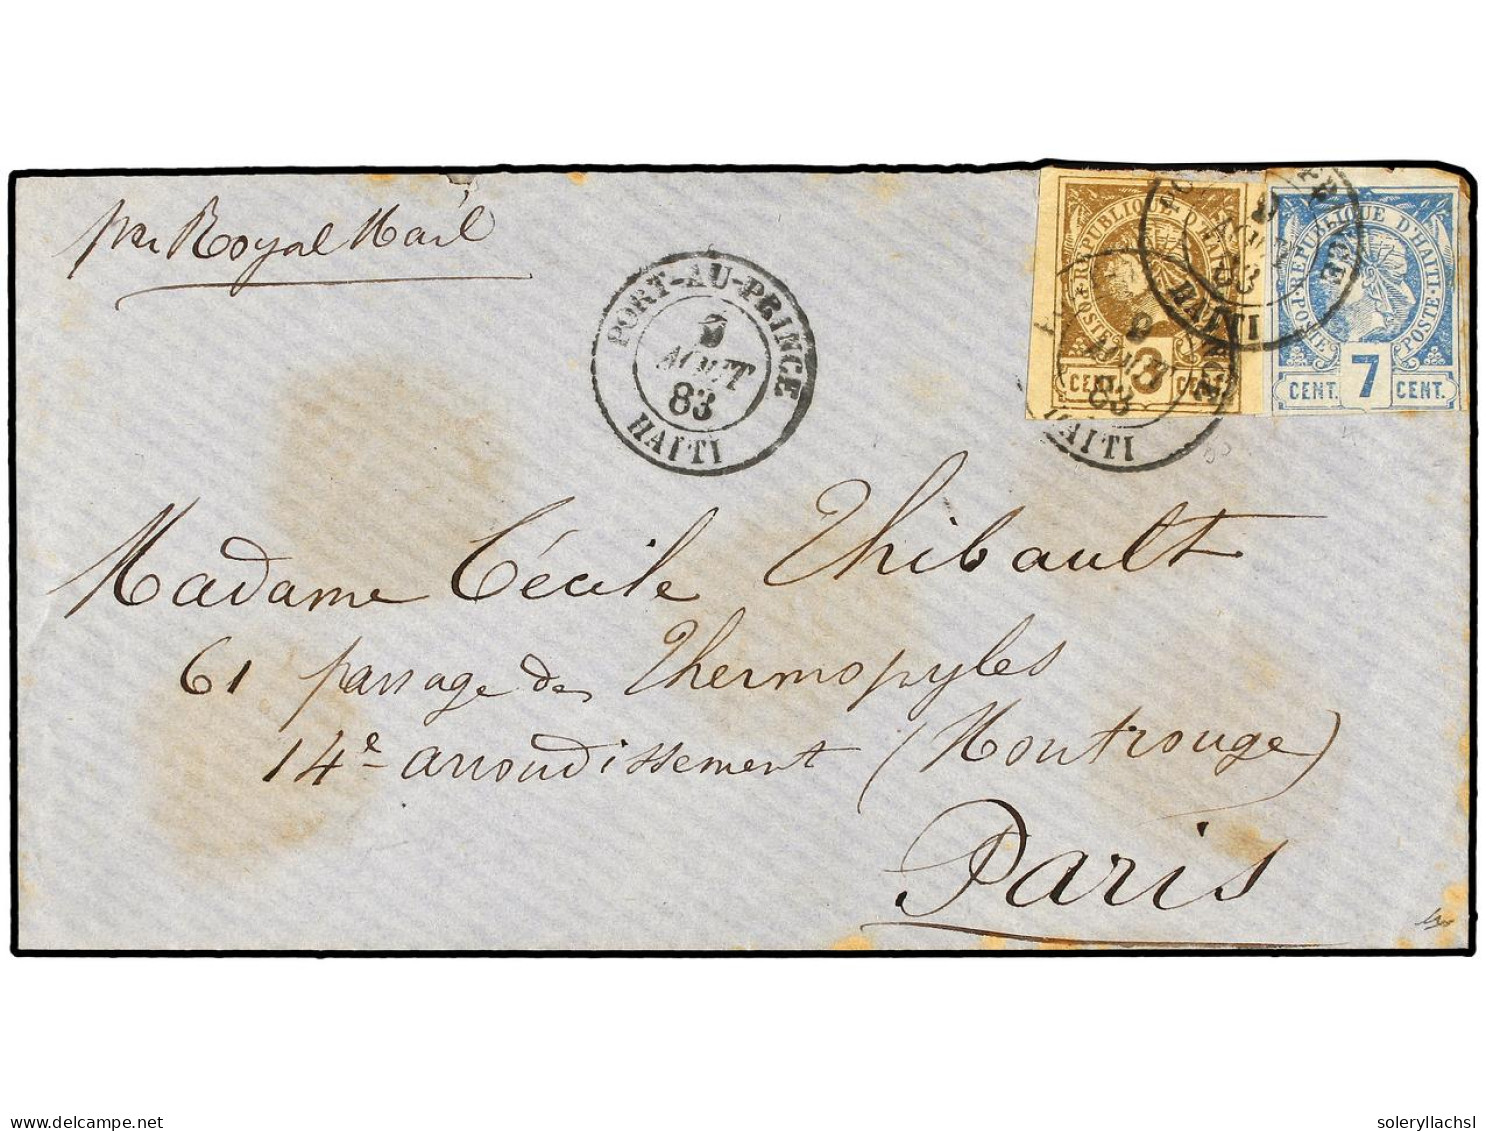 per Royal Mail
PORT-AU-PRINCE
9
AOUT
83
HAITI
REPUBLIQUE D'HAITI
POSTE
CENT. 3 CENT.
9
AOUT
83
HAITI
9
AOUT
83
HAITI
REPUBLIQUE D'HAITI
POSTE
POSTE
CENT. 7 CENT.
Madame Cécile Thibault
61 passage des Thermopyles
14e arrondissement (Montrouge)
Paris
delcampe.net
soleryllachsl